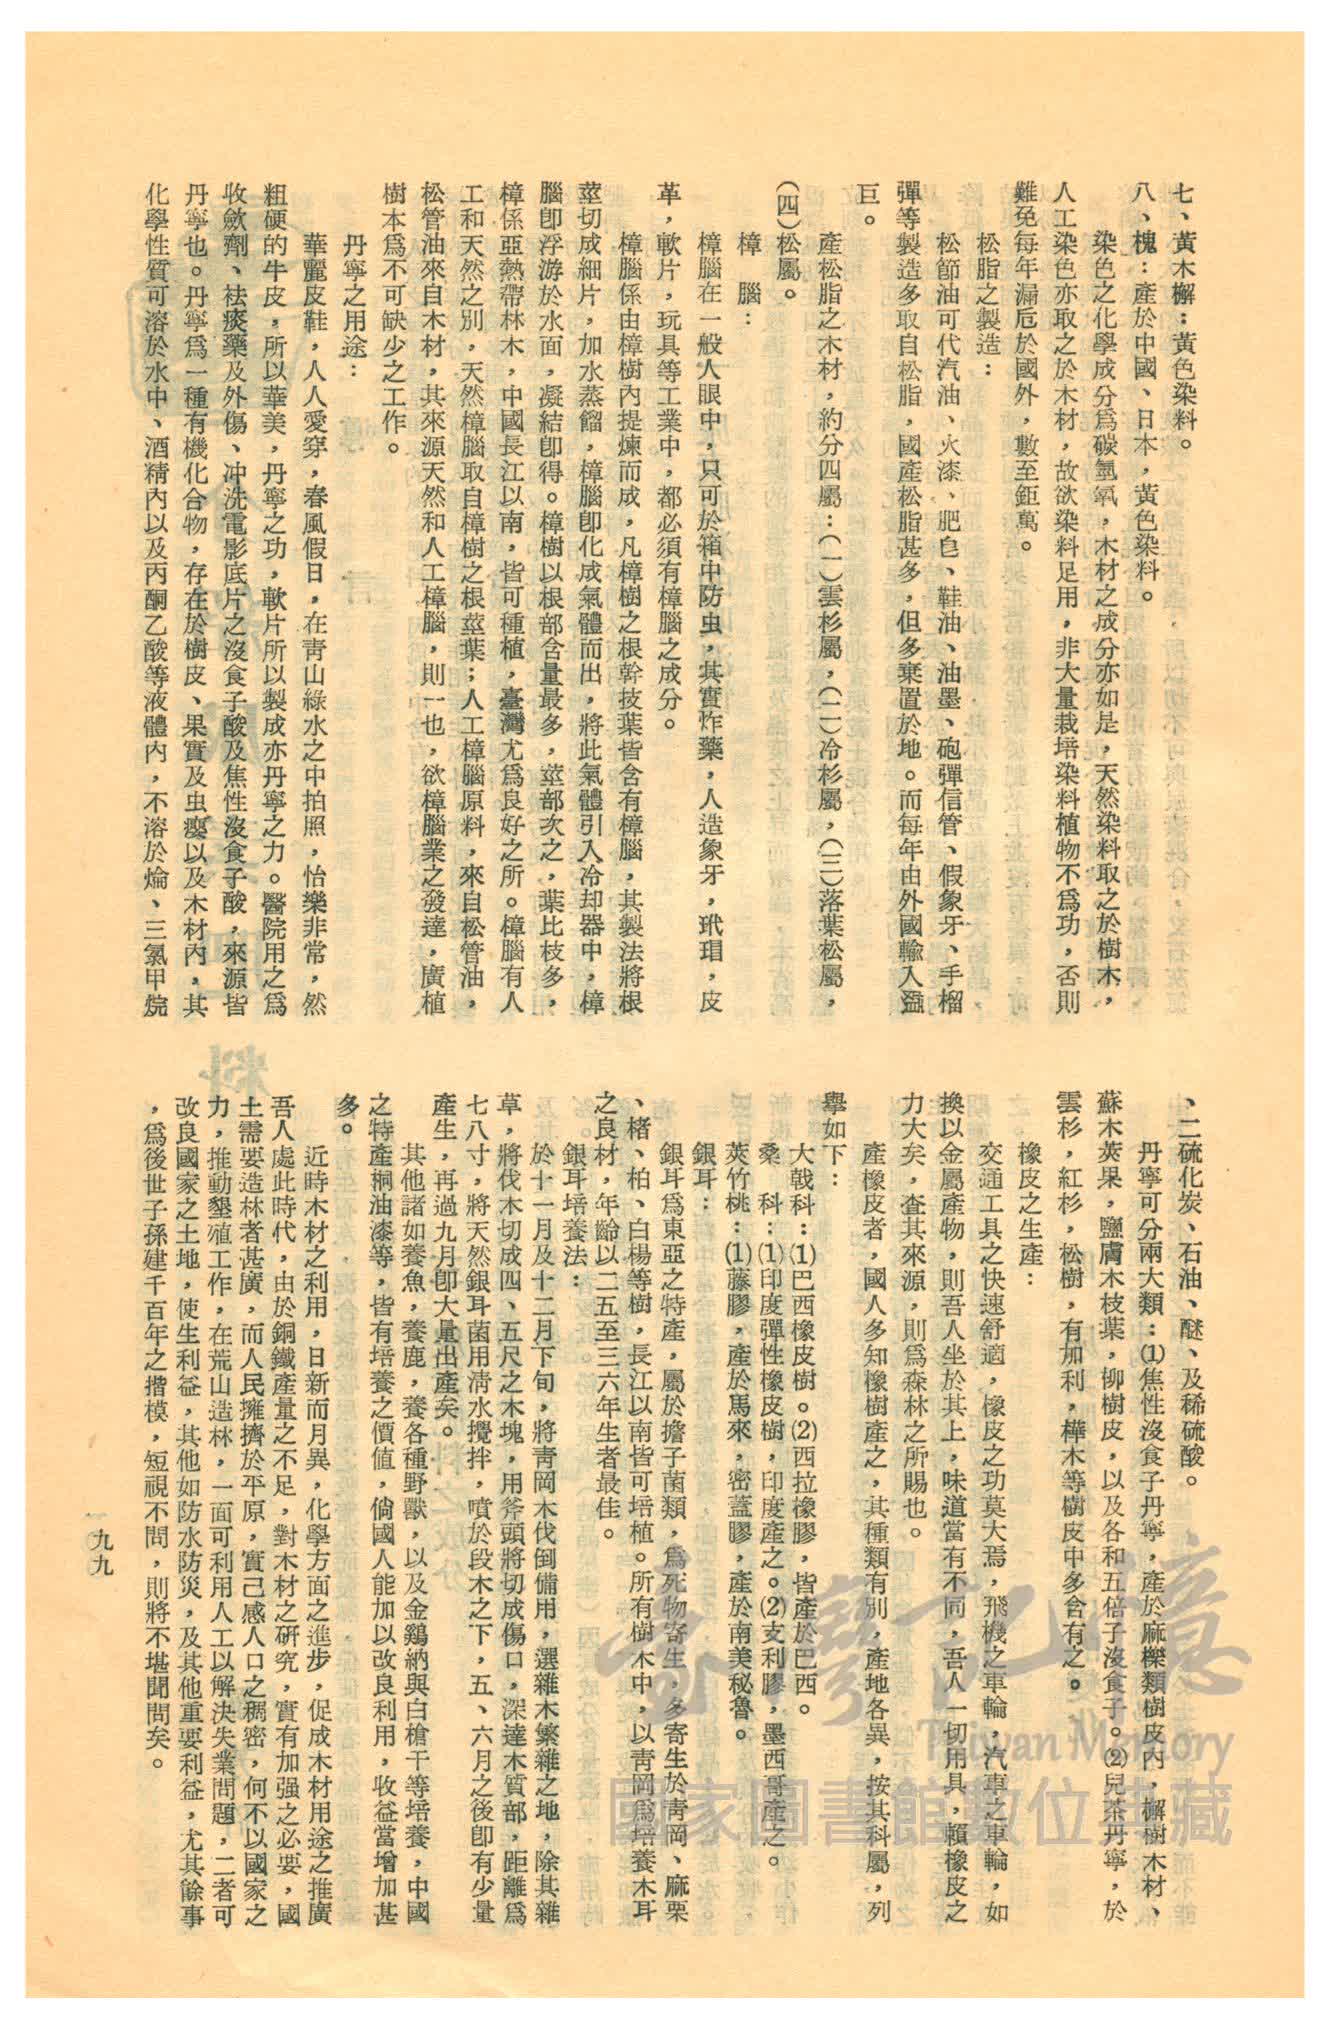 七、黃木檞：黃色染料。
八、槐：產於中國、日本，黃色染料。
染色之化學成分爲碳氫氧，木材之成分亦如是，天然染料取之於樹木，
人工染色亦取之於木材，故欲染料足用，非大量栽培染料植物不爲功，否則
難免每年漏卮於國外，數至鉅萬。
松脂之製造：
松節油可代汽油、火漆、肥皂、鞋油、油墨、砲彈信管、假象牙、手榴
彈等製造多取自松脂，國產松脂甚多，但多棄置於地。而每年由外國輸入溢
巨。
產松脂之木材，約分四屬：(一)雲杉屬，(二)冷杉屬，(三)落葉松屬，
(四)松屬。
樟　腦：
樟腦在一般人眼中，只可於箱中防虫，其實炸藥，人造象牙，玳瑁，皮
革，軟片，玩具等工業中，都必須有樟腦之成分。
樟腦係由樟樹內提煉而成，凡樟樹之根幹技葉皆含有樟腦，其製法將根
莖切成細片，加水蒸餾，樟腦卽化成氣體而出，將此氣體引入冷却器中，樟
腦卽浮游於水面，凝結卽得。樟樹以根部含量最多，莖部次之，葉比枝多，
樟係亞熱帶林木，中國長江以南，皆可種植，臺灣尤爲良好之所。樟腦有人
工和天然之別，天然樟腦取自樟樹之根莖葉；人工樟腦原料，來自松管油，
松管油來自木材，其來源天然和人工樟腦，則一也，欲樟腦業之發達，廣植
樹本爲不可缺少之工作。
丹寧之用途：
華麗皮鞋，人人愛穿，春風假日，在青山綠水之中拍照，怡樂非常，然
粗硬的牛皮，所以華美，丹寧之功，軟片所以製成亦丹寧之力。醫院用之爲
收歛劑、祛痰藥及外傷、冲洗電影底片之沒食子酸及焦性沒食子酸，來源皆
丹寧也。丹寧爲一種有機化合物，存在於樹皮、果實及虫癭以及木材內，其
化學性質可溶於水中、酒精內以及丙酮乙酸等液體內，不溶於煰、三氯甲烷
、二硫化炭、石油、醚、及稀硫酸。
丹寧可分兩大類：(1)焦性沒食子丹寧，產於麻櫟類樹皮內，檞樹木材、
蘇木莢果，鹽膚木枝葉，柳樹皮，以及各和五倍子沒食子。(2)兒茶丹寧，於
雲杉，紅杉，松樹，有加利，樺木等樹皮中多含有之。
橡皮之生產：
交通工具之快速舒適，橡皮之功莫大焉，飛機之車輪，汽車之車輪，如
換以金屬產物，則吾人坐於其上，味道當有不同，吾人一切用具，賴橡皮之
力大矣，查其來源，則爲森林之所賜也。
產橡皮者，國人多知橡樹產之，其種類有別，產地各異，按其科屬，列
舉如下：
大戟科：(1)巴西橡皮樹。(2)西拉橡膠，皆產於巴西。
桑　科：(1)印度彈性橡皮樹，印度產之。(2)支利膠，墨西哥產之。
莢竹桃：(1)藤膠，產於馬來，密蓋膠，產於南美秘魯。
銀耳：
銀耳爲東亞之特產，屬於擔子菌類，爲死物寄生，多寄生於青岡、麻栗
、楮、柏、白楊等樹，長江以南皆可培植。所有樹木中，以青岡爲培養木耳
之良材，年齡以二五至三六年生者最佳。
銀耳培養法：
於十一月及十二月下旬，將青岡木伐倒備用，選雜木繁雜之地，除其雜
草，將伐木切成四、五尺之木塊，用斧頭將切成傷口，深達木質部，距離爲
七八寸，將天然銀耳菌用清水攪拌，噴於段木之下，五、六月之後卽有少量
產生，再過九月卽大量出產矣。
其他諸如養魚，養鹿，養各種野獸，以及金鷄納與白槍干等培養，中國
之特產桐油漆等，皆有培養之價值，倘國人能加以改良利用，收益當增加甚
多。
近時木材之利用，日新而月異，化學方面之進步，促成木材用途之推廣
吾人處此時代，由於銅鐵產量之不足，對木材之研究，實有加强之必要，國
土需要造林者甚廣，而人民擁擠於平原，實己感人口之稠密，何不以國家之
力，推動墾殖工作，在荒山造林，一面可利用人工以解決失業問題，二者可
改良國家之土地，使生利益，其他如防水防災，及其他重要利益，尤其餘事
，爲後世子孫建千百年之揩模，短視不問，則將不堪聞問矣。
一九九
臺灣記憶
Taiwan Memory
國家圖書館數位典藏